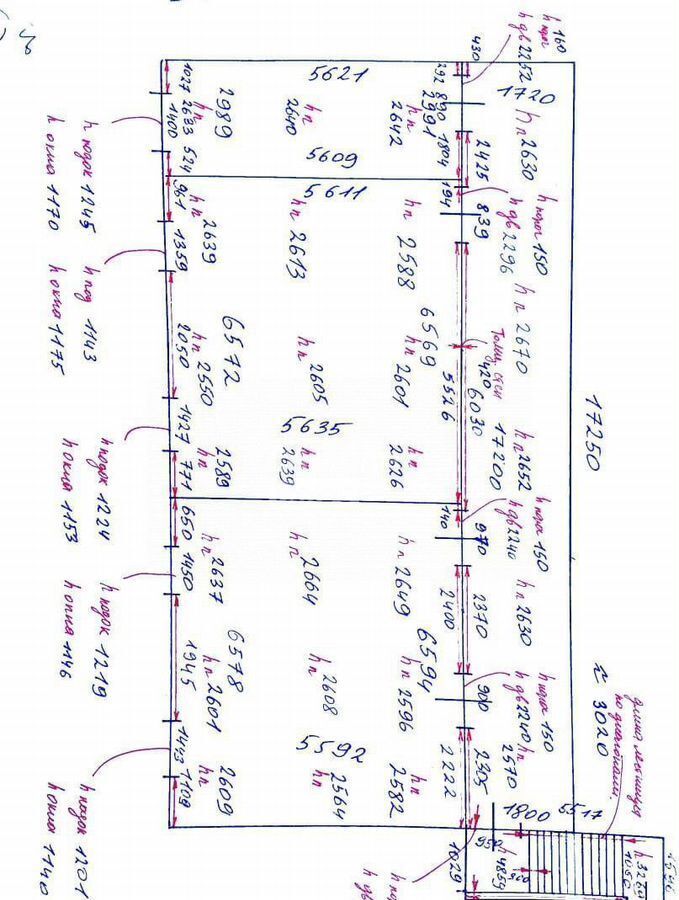 h порог 160
h дв 2252
430
292
890
1720
5621
1027
2693
1400
524
h п 2989
h п 2640
h п 2642
2991
1804
2425
h п 2630
h подок 1245
h окна 1170
5609
5611
194
839
h порог 150
h дв 2296
961
1359
h п 2639
h п 2613
h п 2588
h под 1143
h окна 1175
2050
h п 2550
6572
h п 2605
h п 2601
6569
5526
420
6030
h п 2670
17200
17250
h п 2652
1427
771
h п 2589
5635
h п 2639
h п 2626
h подок 1224
h окна 1153
140
970
h порог 150
h дв 2240
650
1450
h п 2637
h п 2664
h п 2649
2400
2370
h п 2630
h подок 1219
h окна 1146
1945
h п 2601
6578
h п 2608
h п 2596
6594
900
h порог 150
h дв 2240
h п 2570
≈ 3020
длина лестницы
по диагонали.
1443
1109
h п 2609
5592
h п 2564
h п 2582
2222
2305
h подок 1201
h окна 1140
1800
5517
950
1029
h 4859
300
h 3260
1050